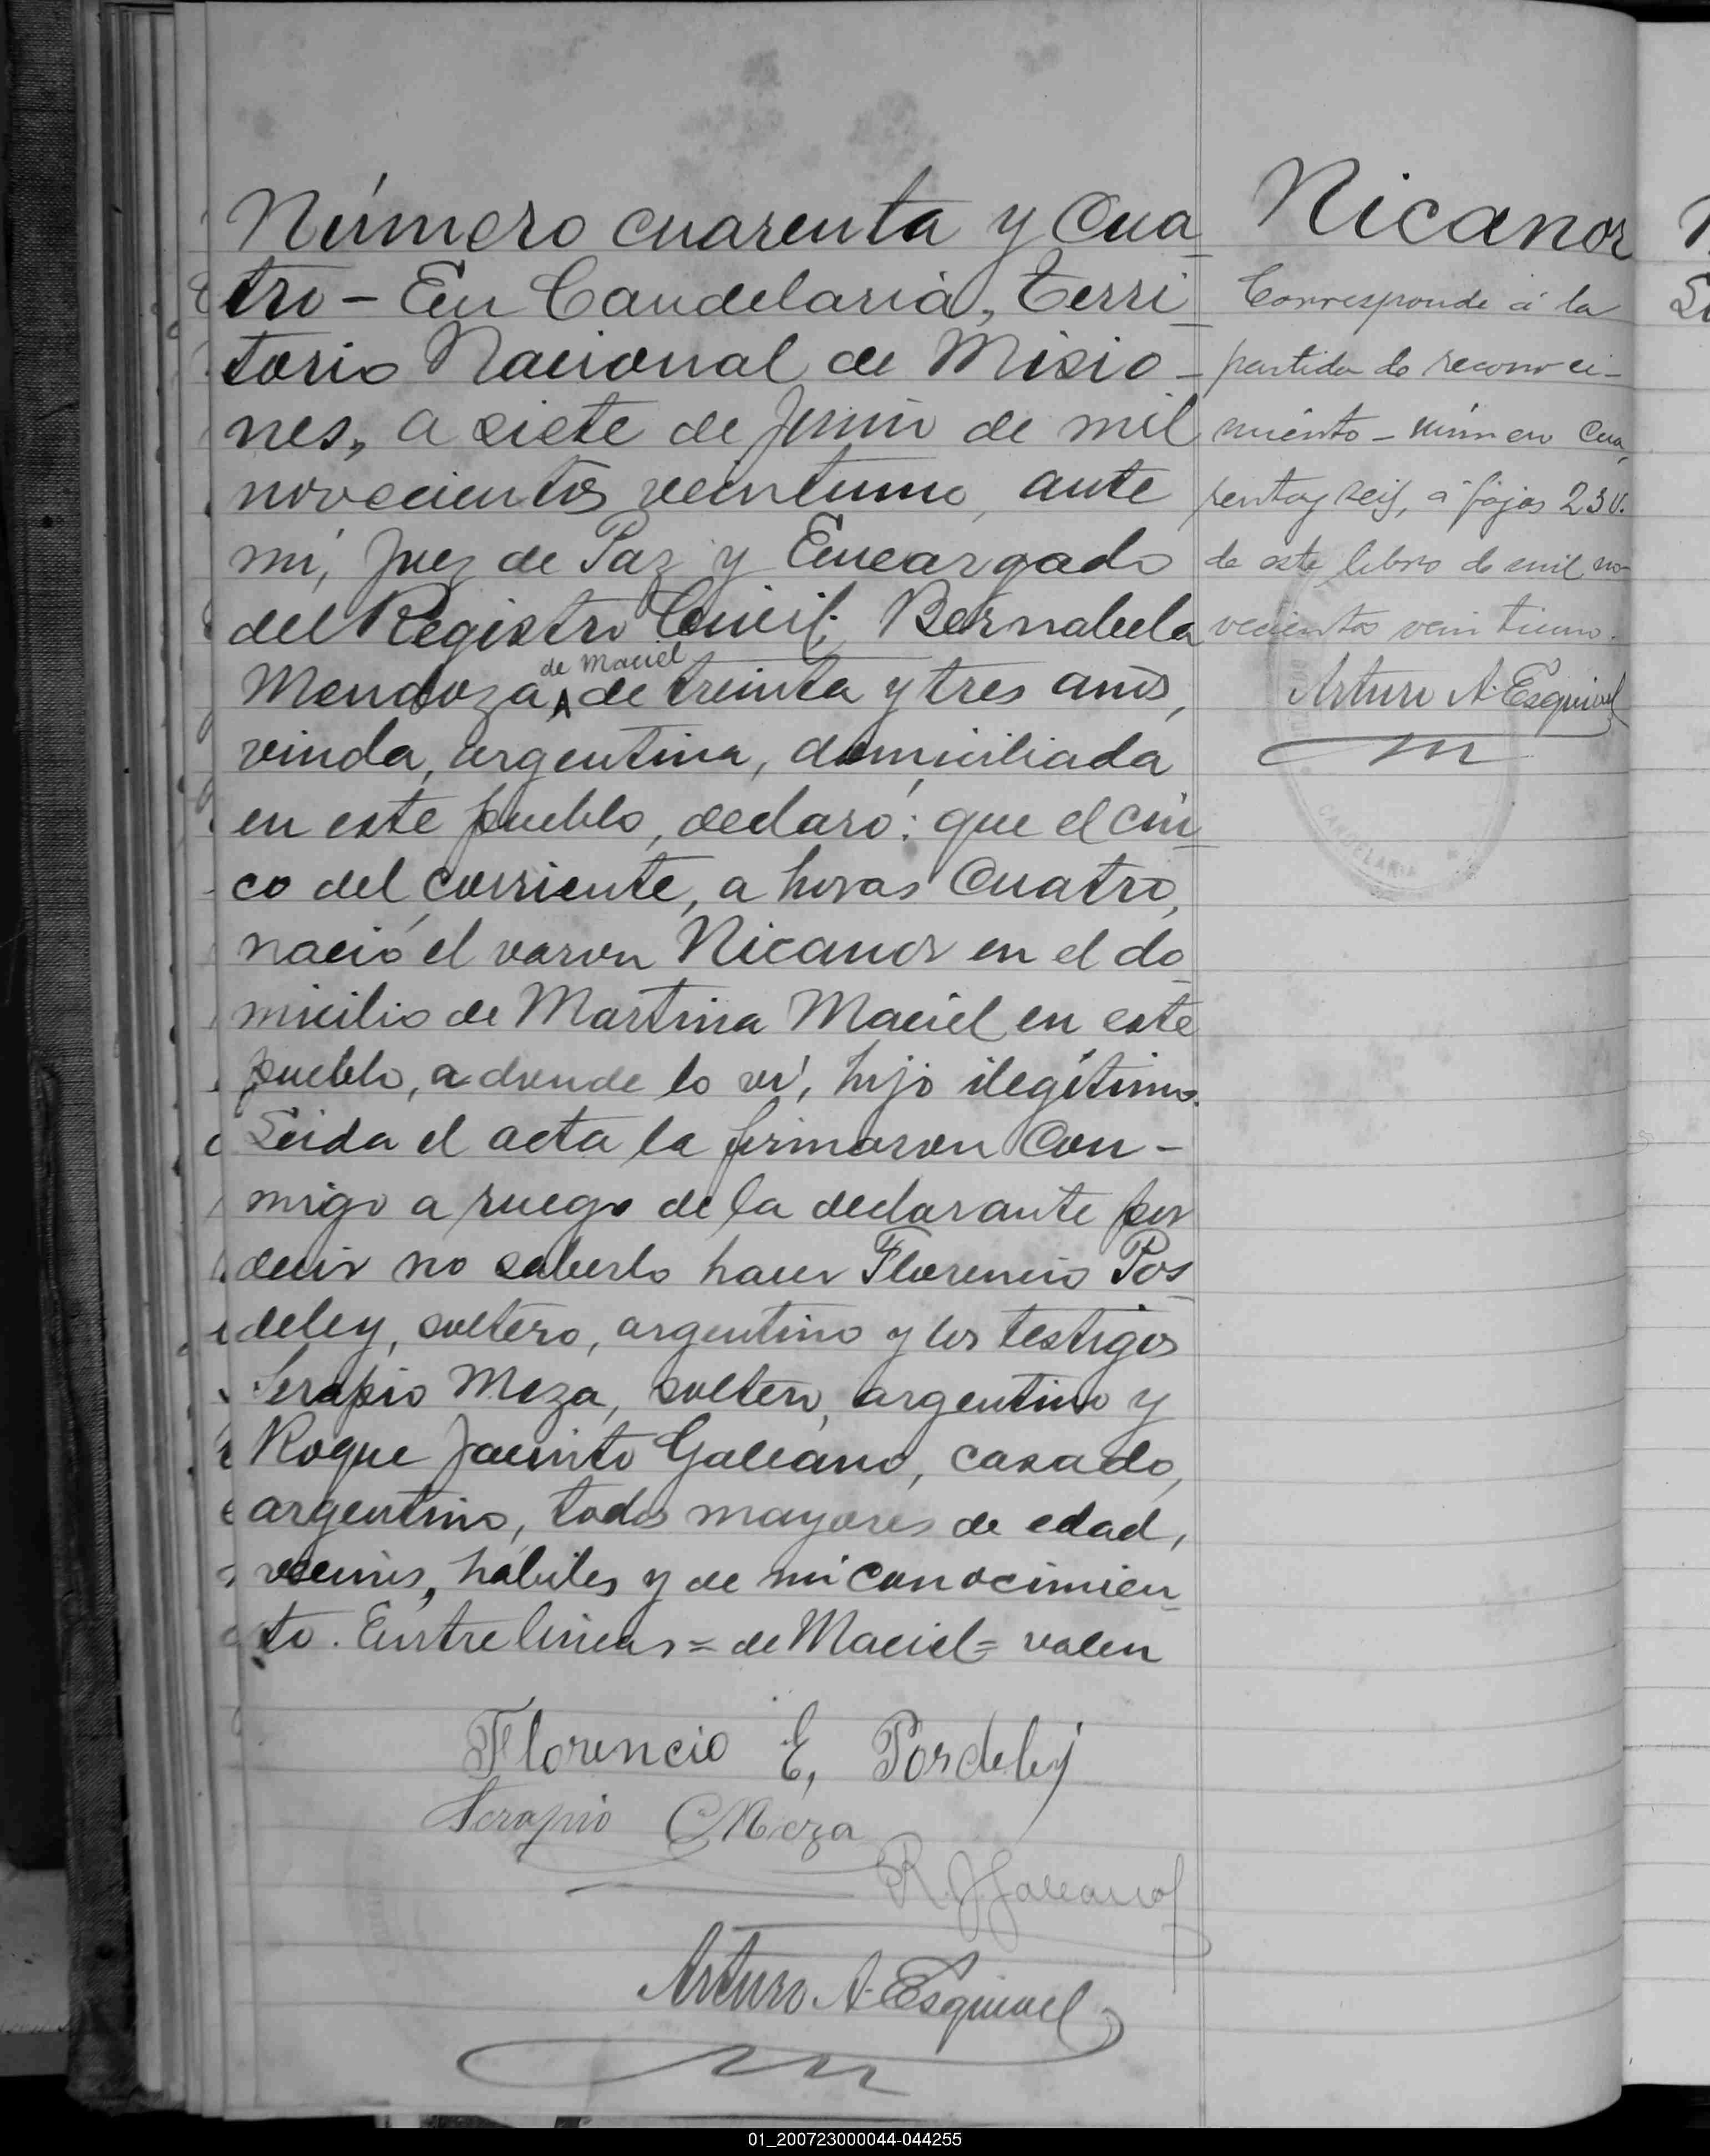 Número cuarenta y cua
tro - En Candelaria, Terri
torio Nacional de Misio -
nes, a siete de Junio de mil
novecientos veintiuno, ante
mi, Juez de Paz y Encargado
del Registro Civil; Bernabela
de Maciel
Mendoza, de treinta y tres años,
viuda, argentina, domiciliada
en este pueblo, declaró: que el cin
co del corriente, a horas cuatro,
nació el varon Nicanor en el do
micilio de Martina Maciel en este
pueblo, a donde lo vi, hijo ilegítimo.
Leida el acta la firmaron con -
migo a ruego de la declarante por
decir no saberlo hacer Florencio Pos
deley, soltero, argentino y los testigos
Serapio Meza, soltero, argentino y
Roque Jacinto Galeano, casado,
argentino, todos mayores de edad,
vecinos, hábiles y de mi conocimien
to. Entre lineas = de Maciel = valen
Florencio E, Pordeley
Serapio Meza
R. J. Galeano
Arturo A. Esquivel
Nicanor
Corresponde á la
partida de reconoci -
miento - número cua
renta y seis, á fojas 230.
de este libro de mil no-
vecientos veintiuno.
Arturo A. Esquivel
CANDELARIA
01_200723000044-044255